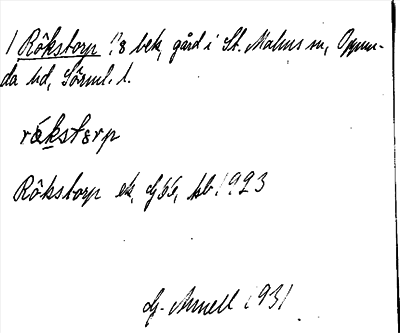 1 Rökstorp ?8 bek, gård i St. Malms sn, Oppun-
da hd, Sörml. l.
rǿkstɛrp
Rökstorp ek, GEG, kb 1923
G. Arnell 1931